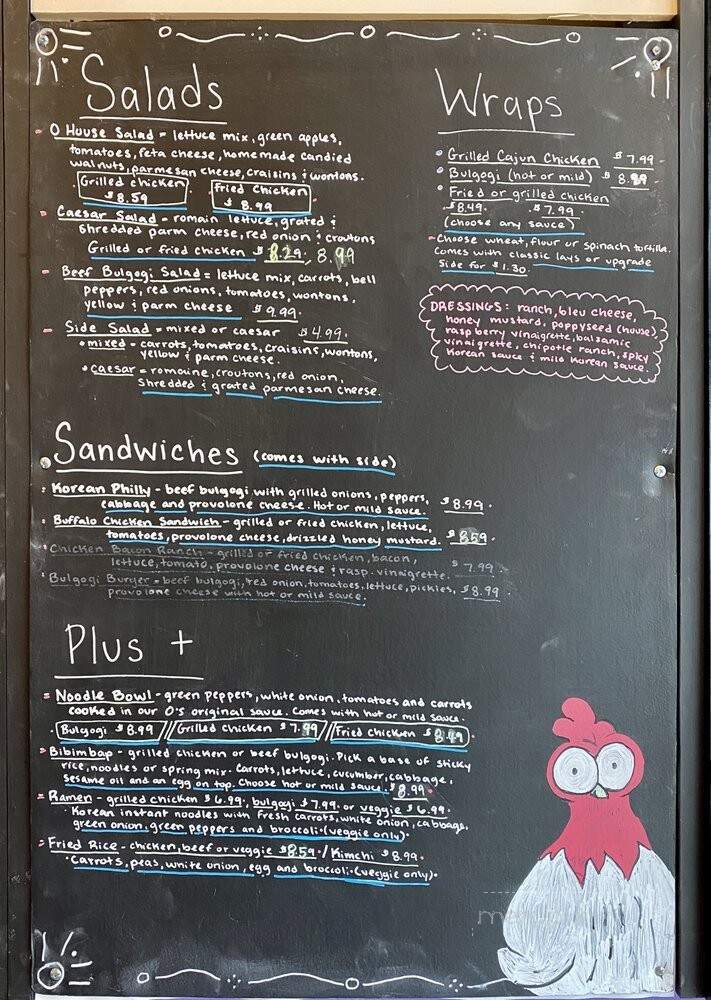 Salads
O House Salad = lettuce mix, green apples,
tomatoes, feta cheese, homemade candied
walnuts, parmesan cheese, craisins & wontons.
Grilled chicken $8.59
Fried Chicken $8.99
Caesar Salad - romain lettuce, grated &
shredded parm cheese, red onion & croutons
Grilled or fried chicken $8.29. 8.99
Beef Bulgogi Salad = lettuce mix, carrots, bell
peppers, red onions, tomatoes, wontons,
yellow & parm cheese $9.99.
Side Salad = mixed or caesar $4.99.
• mixed - carrots, tomatoes, craisins, wontons,
yellow & parm cheese.
• caesar = romaine, croutons, red onion,
shredded & grated parmesan cheese.
Wraps
• Grilled Cajun Chicken $7.99
• Bulgogi (hot or mild) $8.99
• Fried or grilled chicken
$8.49. $7.99.
(choose any sauce)
- Choose wheat, flour or spinach tortilla.
Comes with classic lays or upgrade
side for $1.30.
DRESSINGS: ranch, bleu cheese,
honey mustard, poppyseed (house)
raspberry vinaigrette, balsamic
vinaigrette, chipotle ranch, spicy
Korean sauce & mild Korean sauce.
Sandwiches (comes with side)
Korean Philly - beef bulgogi with grilled onions, peppers,
cabbage and provolone cheese. Hot or mild sauce. $8.99.
Buffalo Chicken Sandwich - grilled or fried chicken, lettuce,
tomatoes, provolone cheese, drizzled honey mustard. $8.59
Chicken Bacon Ranch - grilled or fried chicken, bacon,
lettuce, tomato, provolone cheese & rasp. vinaigrette. $7.99
Bulgogi Burger - beef bulgogi, red onion, tomatoes, lettuce, pickles, $8.99
provolone cheese with hot or mild sauce.
Plus +
Noodle Bowl - green peppers, white onion, tomatoes and carrots
cooked in our O's original sauce. Comes with hot or mild sauce.
Bulgogi $8.99 // Grilled Chicken $7.99 // Fried chicken $8.49
Bibimbap - grilled chicken or beef bulgogi. Pick a base of sticky
rice, noodles or spring mix. Carrots, lettuce, cucumber, cabbage,
sesame oil and an egg on top. Choose hot or mild sauce. $8.99.
Ramen - grilled chicken $6.99, bulgogi $7.99 or veggie $6.99.
• Korean instant noodles with fresh carrots, white onion, cabbage,
green onion, green peppers and broccoli. (veggie only)
Fried Rice - chicken, beef or veggie $8.59 / Kimchi $8.99.
• Carrots, peas, white onion, egg and broccoli. (veggie only).